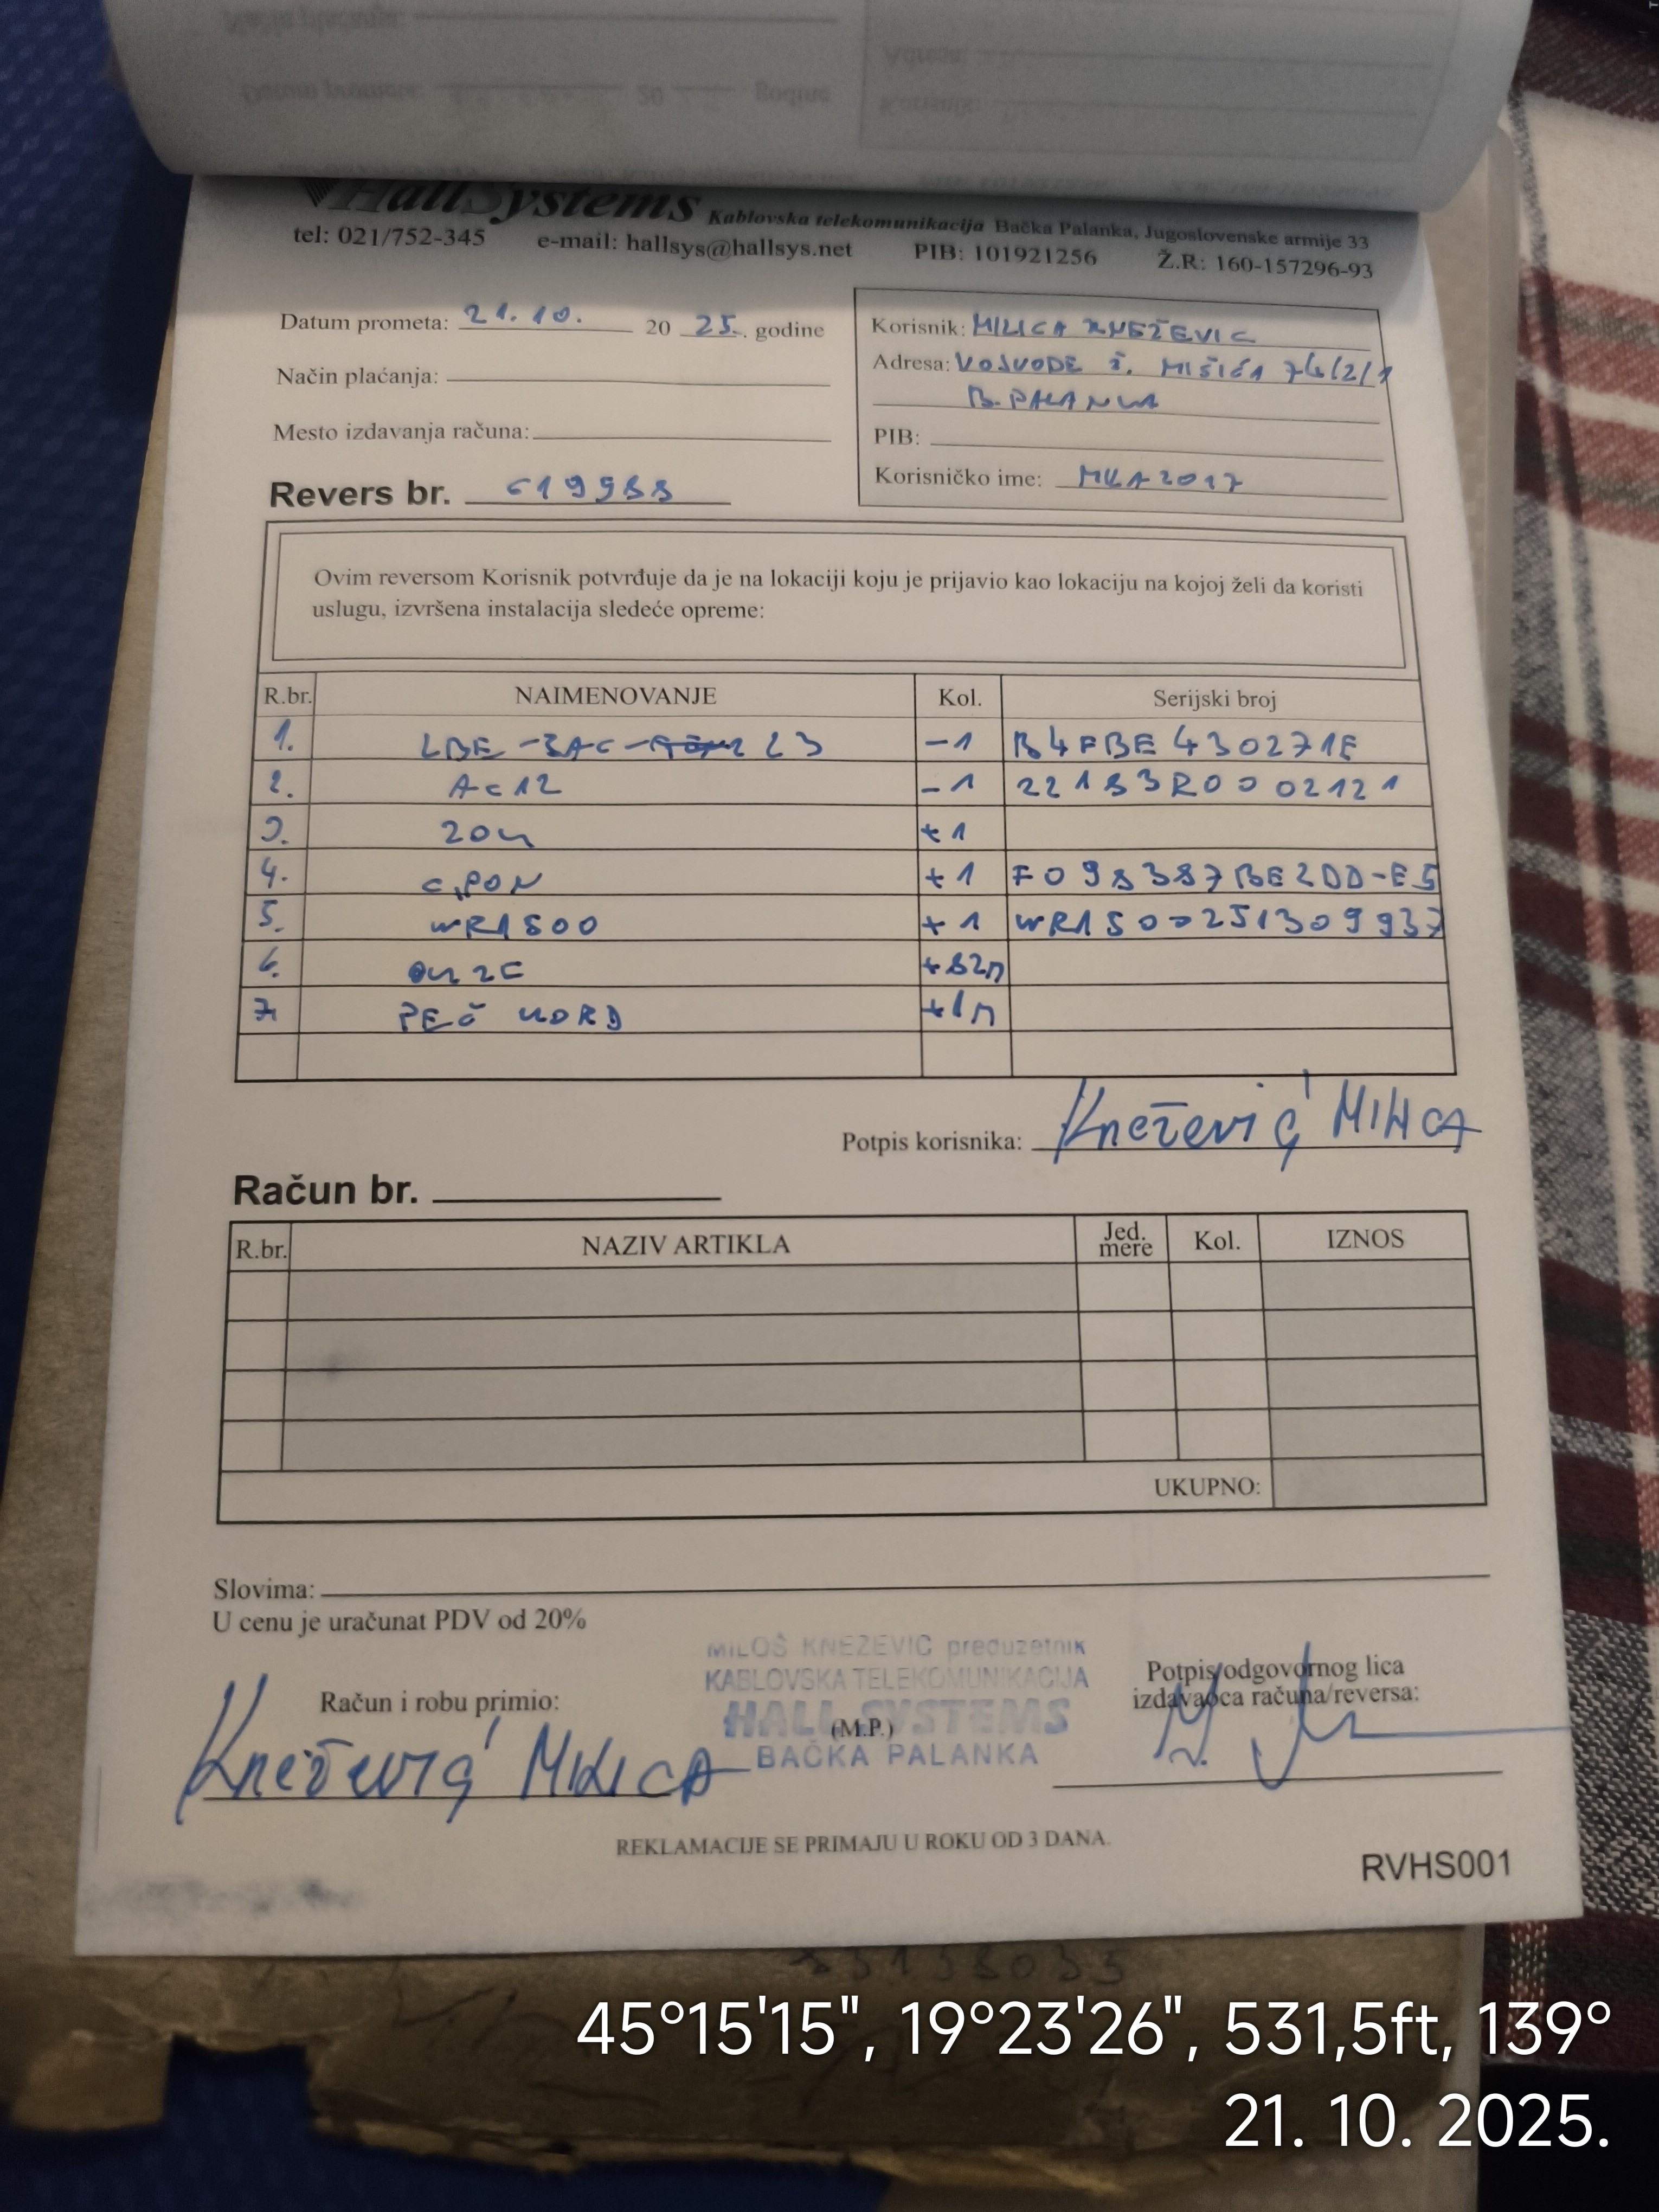 HallSystems Kablovska telekomunikacija Bačka Palanka, Jugoslovenske armije 33
tel: 021/752-345 e-mail: hallsys@hallsys.net PIB: 101921256 Ž.R: 160-157296-93
Datum prometa: 21.10. 20 25. godine
Način plaćanja:
Mesto izdavanja računa:
Revers br. 619988
Korisnik: MILICA KNEŽEVIC
Adresa: VOJVODE Ž. MIŠIĆA 74/2/1
B. PALANKA
PIB:
Korisničko ime: MKA2017
Ovim reversom Korisnik potvrđuje da je na lokaciji koju je prijavio kao lokaciju na kojoj želi da koristi
uslugu, izvršena instalacija sledeće opreme:
R.br. NAIMENOVANJE Kol. Serijski broj
1. LBE -5AC- 23 -1 B4FBE430271E
2. AC12 -1 22183R00002121
3. ZOK +1
4. GPON +1 F098387BE2DD-E5
5. WR1500 +1 WR1500251309937
6. OK 2C +82m
7. PEČ KORD +1m
Potpis korisnika: Knežević MILICA
Račun br.
R.br. NAZIV ARTIKLA Jed. mere Kol. IZNOS
UKUPNO:
Slovima:
U cenu je uračunat PDV od 20%
MILOŠ KNEŽEVIĆ preduzetnik
KABLOVSKA TELEKOMUNIKACIJA
HALL SYSTEMS
BAČKA PALANKA
(M.P.)
Račun i robu primio:
Knežević MILICA
Potpis odgovornog lica
izdavaoca računa/reversa:
REKLAMACIJE SE PRIMAJU U ROKU OD 3 DANA.
RVHS001
45°15'15", 19°23'26", 531,5ft, 139°
21. 10. 2025.